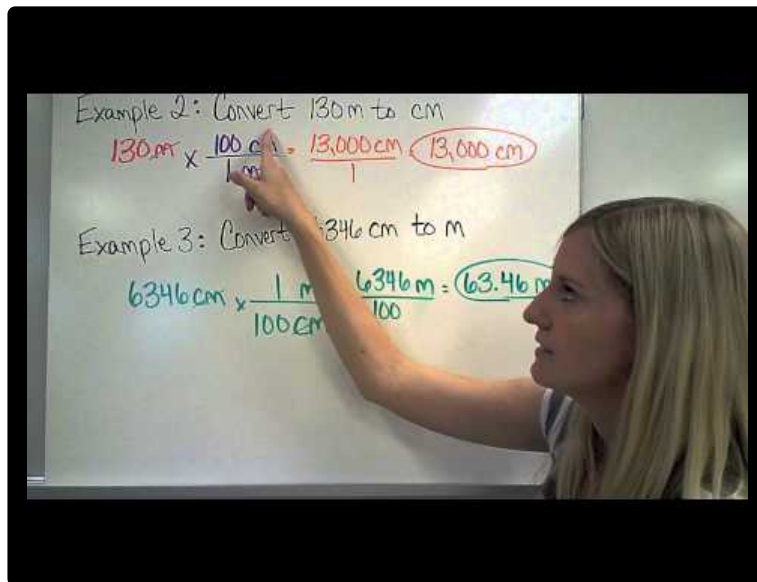 Example 2: Convert 130m to cm
130m x 100 cm / 1 m = 13,000 cm / 1 13,000 cm
Example 3: Convert 6346 cm to m
6346 cm x 1 m / 100 cm 6346 m / 100 = 63.46 m